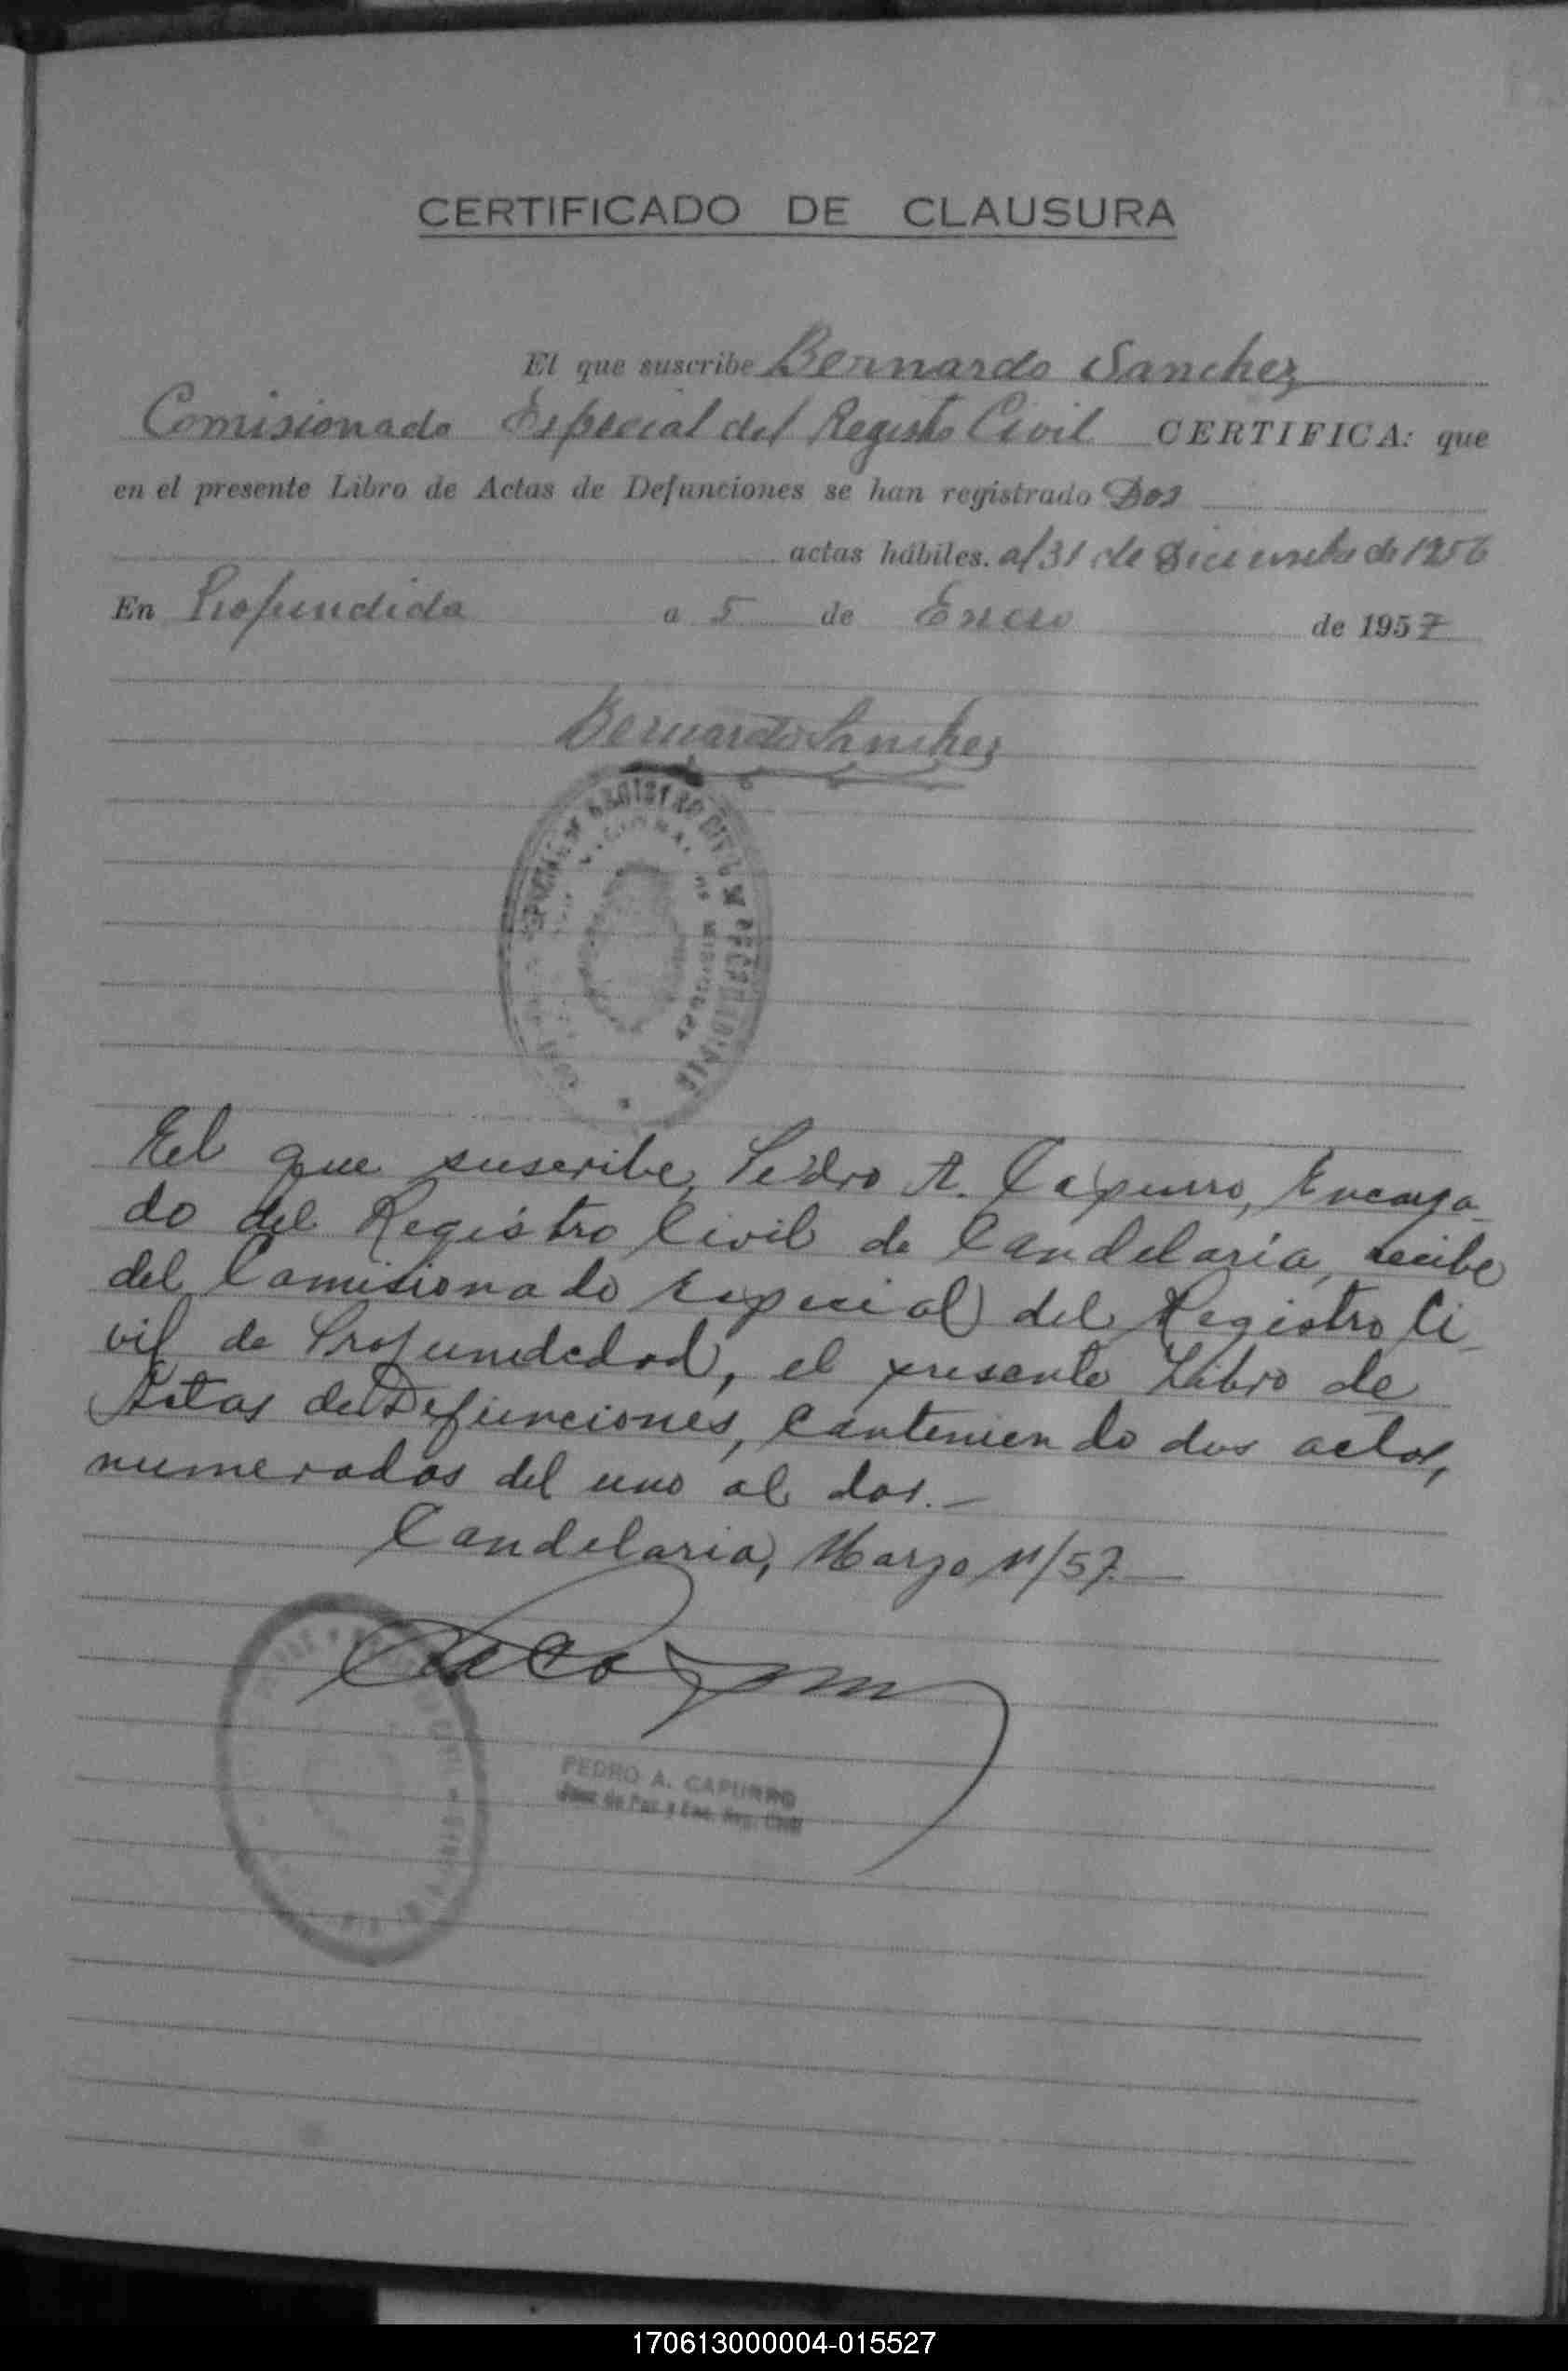 CERTIFICADO DE CLAUSURA
El que suscribe Bernardo Sanchez
Comisionado Especial del Registro Civil CERTIFICA: que
en el presente Libro de Actas de Defunciones se han registrado Dos
actas hábiles. al 31 de Diciembre de 1956
En Profundida a 5 de Enero de 1957
Bernardo Sanchez
El que suscribe, Pedro A. Capurro, Encarga-
do del Registro Civil de Candelaria, recibe
del Comisionado Especial del Registro Ci-
vil de Profundedad, el presente Libro de
Actas de Defunciones, conteniendo dos actas,
numerados del uno al dos.-
Candelaria, Marzo 11/57.
PEDRO A. CAPURRO
Juez de Paz y Enc. Reg. Civil
170613000004-015527